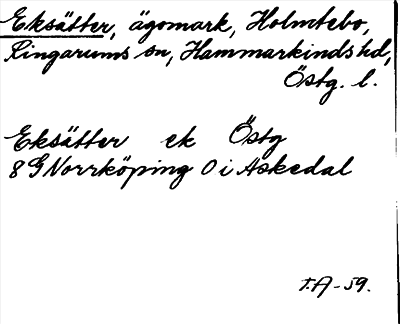 Eksätter, ägomark, Holmtebo,
Ringarums sn, Hammarkinds hd,
Östg. l.
Eksätter ek Östg
8 G Norrköping O i Askedal
T.A-59.